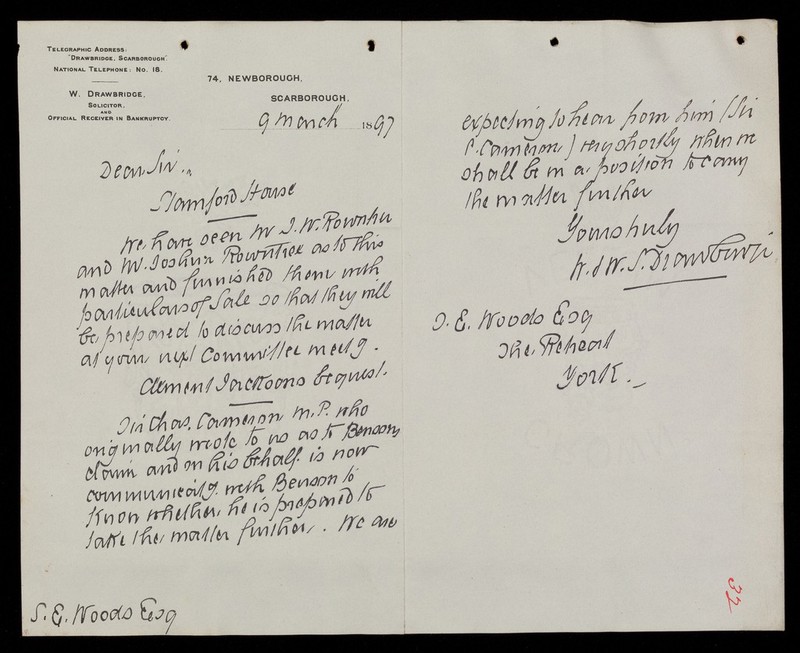 TELEGRAPHIC ADDRESS:
"DRAWBRIDGE, SCARBOROUGH"
NATIONAL TELEPHONE: NO. 18.
W. DRAWBRIDGE,
SOLICITOR,
AND
OFFICIAL RECEIVER IN BANKRUPTCY.
74, NEWBOROUGH,
SCARBOROUGH,
9 March 1897
Dear Sir,
Stamford House
We have seen Mr J. W. Rowntree
and Mr. Joshua Rowntree as to this
matter and furnished them with
particulars of Sale so that they will
be prepared to discuss the matter
at your next Committee meetg.
Clement Jacksons bequest.
Sir Chas. Cameron M.P. who
originally wrote to us as to Bensons
claim and on his behalf is now
communicatg. with Benson to
know whether he is prepared to
take the matter further. We are
S. E. Woods Esq
expecting to hear from him (Sir
C. Cameron) very shortly when we
shall be in a position to carry
the matter further
Yours truly
W. & W. S. Drawbridge
S. E. Woods Esq
The Retreat
York.
37